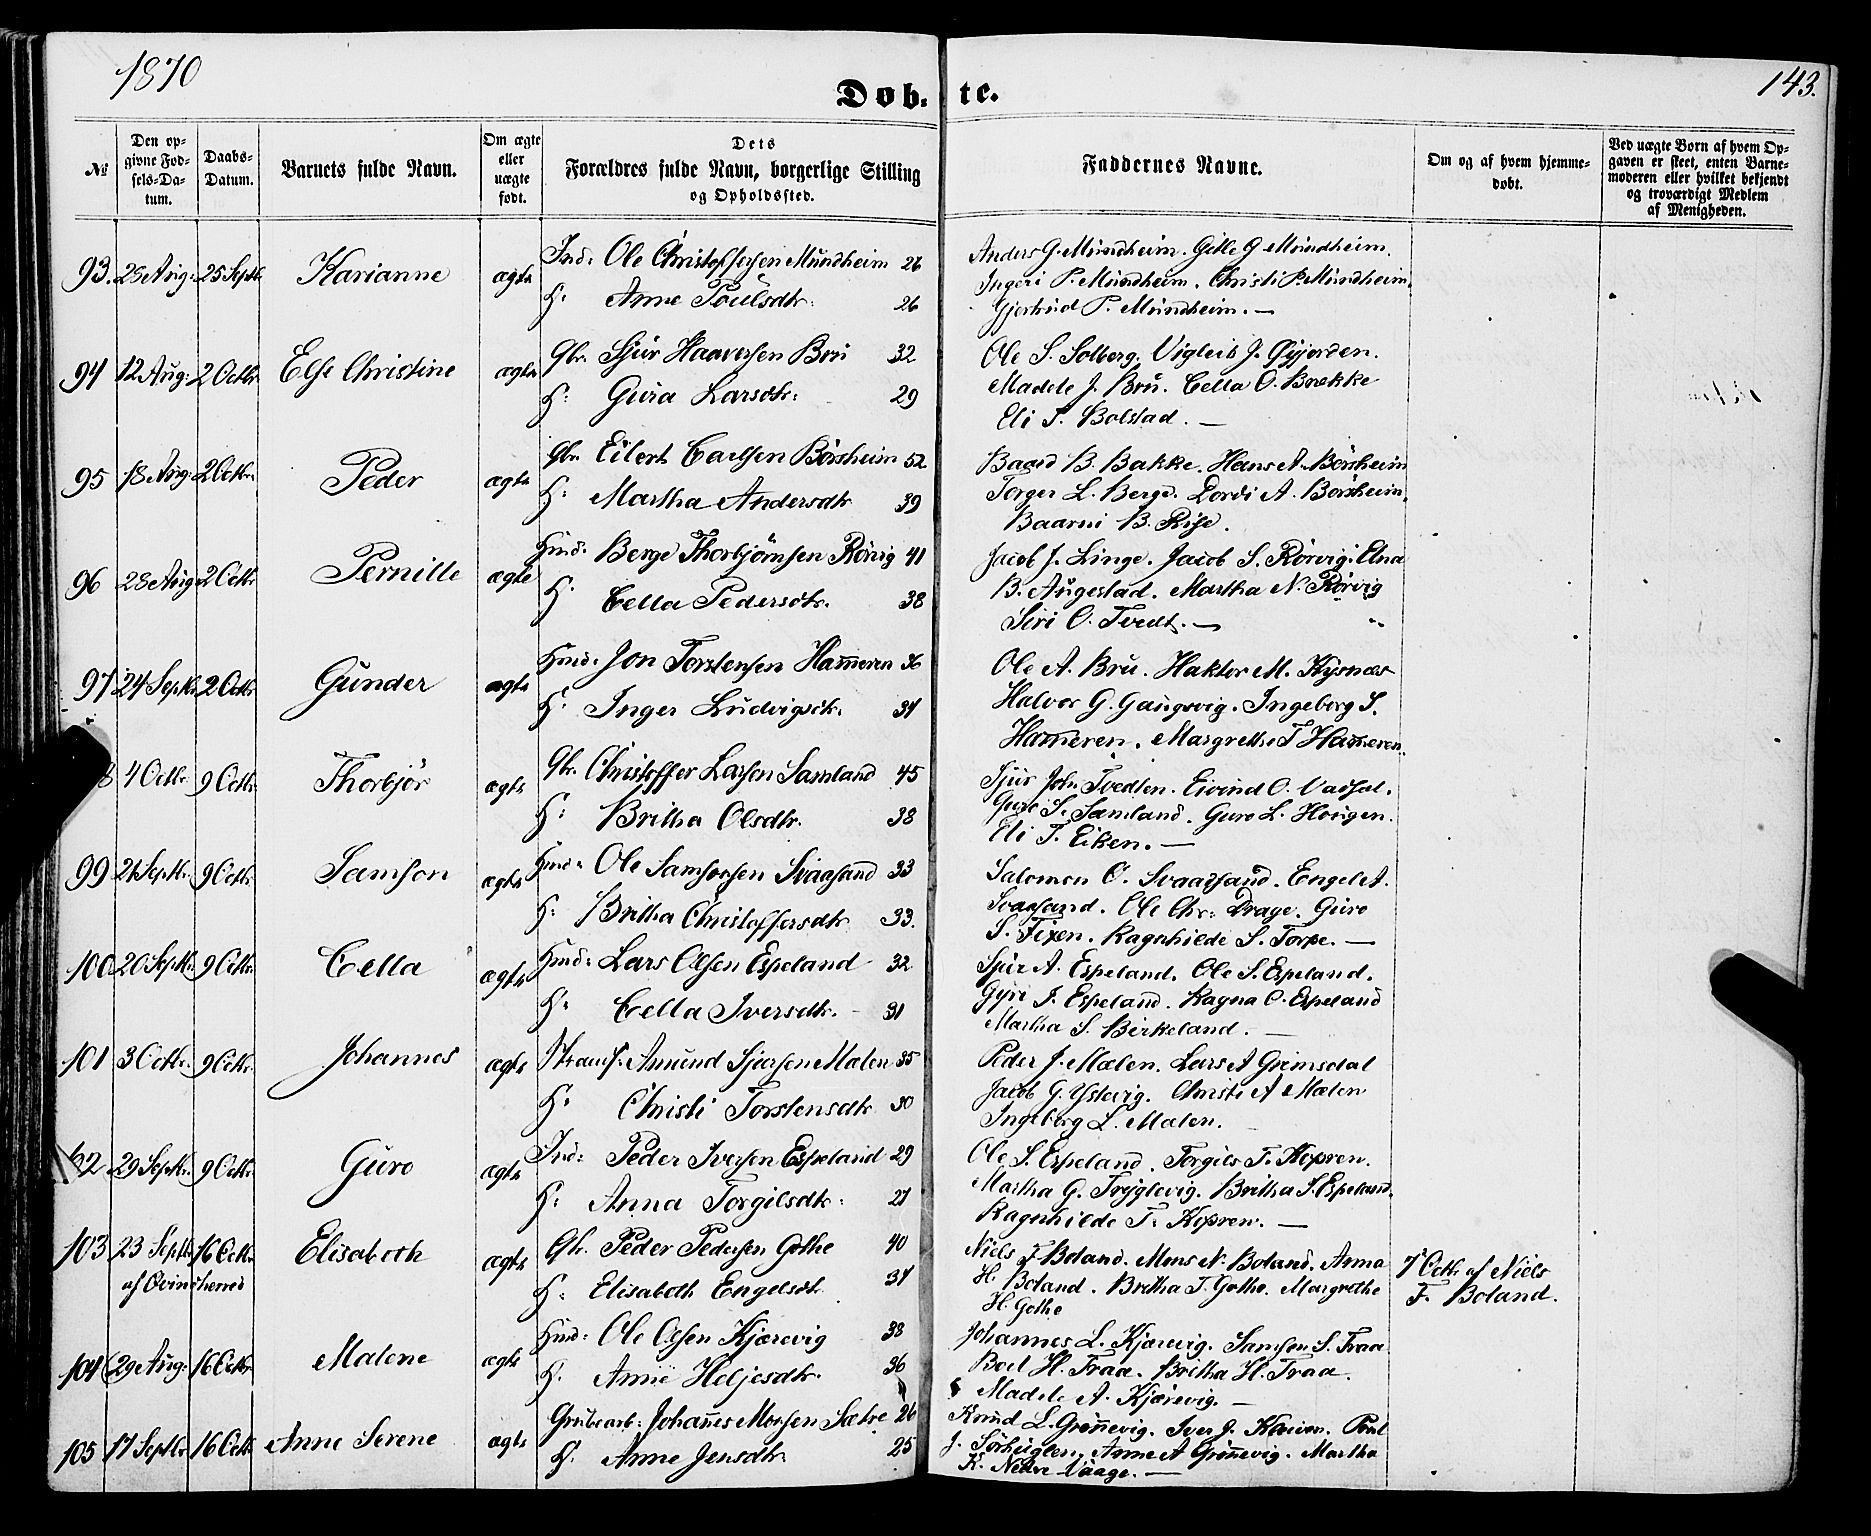 1870
143.
Døb. te.
№
Den op-
givne Fød-
sels-Da-
tum.
Daabs-
Datum.
Barnets fulde Navn.
Om ægte
eller
uægte
født.
Dets
Forældres fulde Navn, borgerlige Stilling
og Opholdssted.
Faddernes Navne.
Om og af hvem hjemme-
døbt.
Ved uægte Børn af hvem Op-
gaven er skeet, enten Barne-
moderen eller hvilket bekjendt
og troværdigt Medlem
af Menigheden.
93. 25 Aug: 25 Septbr Karianne ægte Ind: Ole Christoffersen Mundheim 26
H: Anne Poulsdtr: 26
Anders G. Mundheim. Gille G Mundheim.
Ingeri P. Mundheim. Christi P. Mundheim.
Gjertrud P. Mundheim. —
94 12 Aug: 2 Octbr Else Christine ægte Gbr. Sjur Haaversen Bru 32
H: Gura Larsdtr: 29
Ole S. Solberg. Vigleik J. Gjerden.
Madele J. Bru. Cella O. Brekke
Eli T. Bolstad. —
95 18 Aug. 2 Octbr Peder ægte Gbr. Eilert Carlsen Börsheim 52
H: Martha Andersdtr 39
Baard B. Bakke. Hans A. Börsheim
Torger L. Berge. Dordi A. Borsheim.
Baarni B. Rise.
96 28 Aug. 2 Octbr Pernille ægte Husm: Berge Thorbjörnsen Rörvig 41
H: Cella Pedersdtr. 38
Jacob J. Linge. Jacob S. Rörvig. Elna
B. Augestad. Martha N. Rörvig
Siri O. Tvedt. —
97 24 Septbr 2 Octbr Gunder ægte Husm: Jon Torstensen Hameren 36
H: Inger Ludvigsdtr. 34
Ole A. Bru. Haktor M. Kysnæs
Halvor G. Gaugsvig. Ingeborg S.
Hameren. Margrethe T Hameren.
8 4 Octbr. 9 Octbr. Thorbjör ægte Gbr. Christoffer Larsen Samland 45
H: Britha Olsdtr. 38
Sjur Joh: Tvedten. Eivind O.
Guro S. Samland. Guro L. Hougen.
Eli T. Eiken. —
99 21 Septbr. 9 Octbr. Samson ægte Husm: Ole Samsonsen Svaasand 33
H: Britha Christoffersdtr 33.
Salomon O. Svaasand. Engel A.
Svaasand. Ole Chr: Drage. Guro
S. Fixen. Ragnhilde S. Torpe. —
100 20 Septbr. 9 Octbr. Cella ægte Husm: Lars Olsen Espeland 32
H: Cella Iversdtr. 31
Sjur A. Espeland. Ole S. Espeland.
Gyri I. Espeland. Ragna O. Espeland
Martha S. Birkeland. —
101 3 Octbr. 9 Octbr. Johannes ægte Amund Sjursen Mælen 35
H: Christi Torstensdtr 30
Peder J. Mælen. Lars A Grimsdal
Jacob G. Ystevig. Christi A Mælen
Ingeborg L. Mælen.
102 29 Septbr. 9 Octbr. Guro ægte Ind: Peder Iversen Espeland 29
H: Anna Torgilsdtr: 27
Ole S. Espeland. Torgils T. Kopren.
Martha G. Tryglevig. Britha S. Espeland.
Ragnhilde T. Kopren. —
103 23 Septbr 16 Octbr. Elisabeth ægte Gbr. Peder Pedersen Gothe 40
af Qvindherred
H: Elisabeth Engelsdt. 34
Niels F. Botand. Mons N. Botand. Anna
H. Botand. Britha T. Gothe. Margrethe
H. Gothe
7 Octbr af Niels
F. Botand.
104 29 Aug: 16 Octbr Malene ægte Husm: Ole Olsen Kjærevig 38
H. Anne Heljesdtr. 36
Johannes L. Kjærevig. Samson S. Traa
Boel H. Traa. Britha H. Traa.
Madele A. Kjærevig. —
105 17 Septbr 16 Octb Anne Serene ægte Grubearb: Johannes Monsen Sætre 26
H. Anne Jensdtr. 25
Knud L. Grønnevig. Iver J. Kleiven. Poul
J. Sörhuglen. Anne A Grönnevig. Martha
K. Nedre Vaage. —